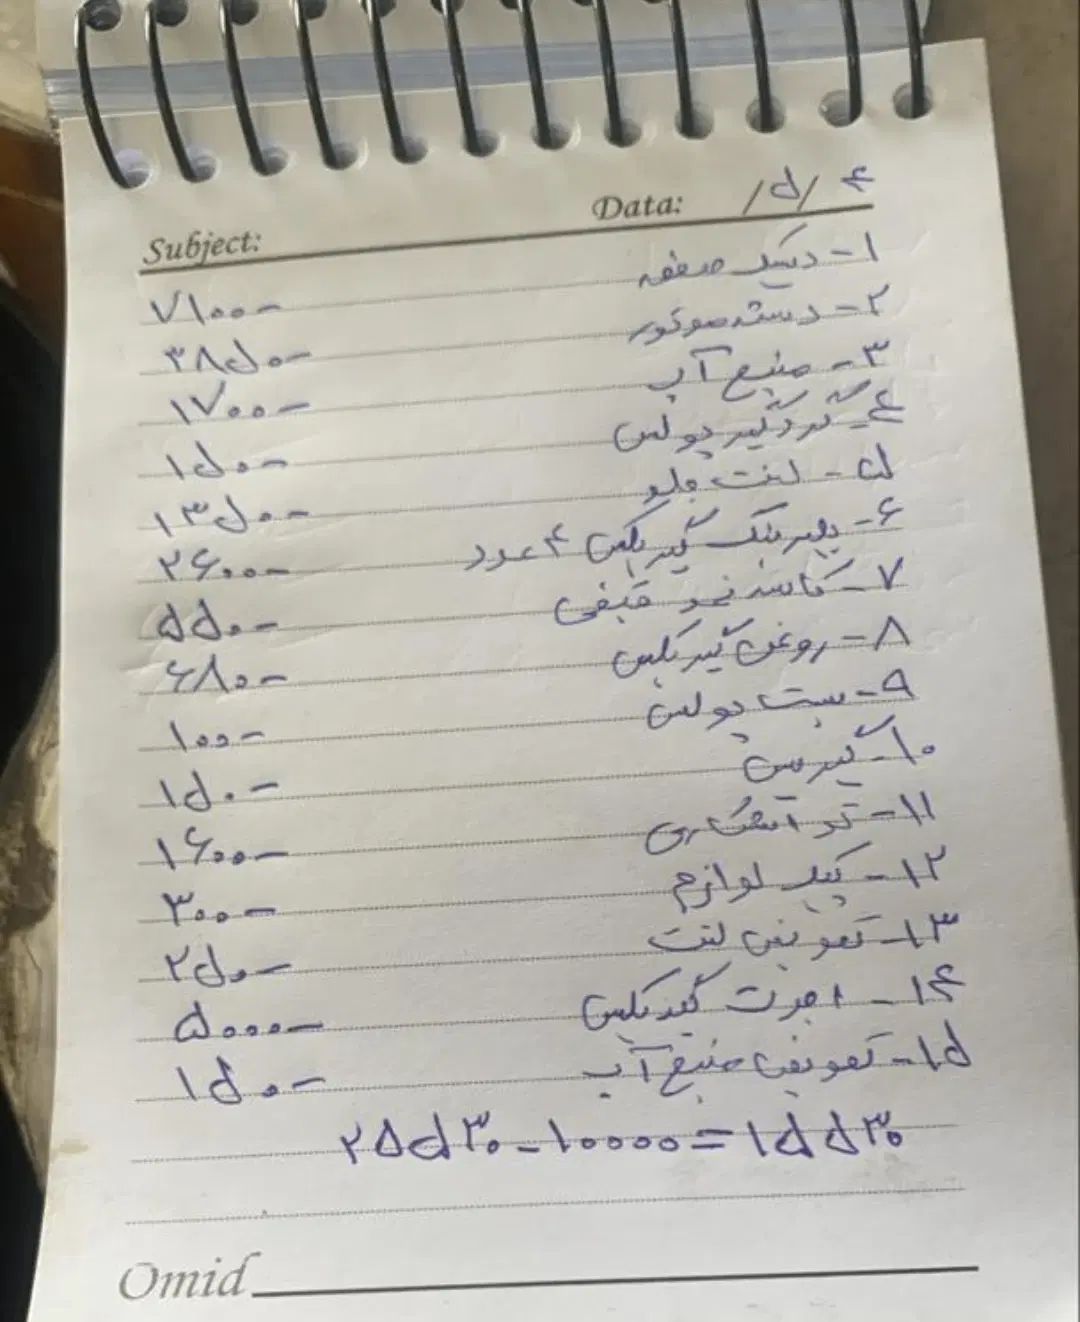 Subject: Data: /۵/۴
۱- دیسک صفحه ۷۱۰۰-
۲- دسته موتور ۳۸۵۰-
۳- منبع آب ۱۷۰۰-
۴- گردگیر پولس ۱۵۰-
۵- لنت جلو ۱۳۵۰-
۶- بلبرینگ گیربکس ۴ عدد ۲۶۰۰-
۷- کاسه نمد قیفی ۵۵۰-
۸- روغن گیربکس ۶۸۰-
۹- بست پولس ۱۰۰-
۱۰- گیریس ۱۵۰-
۱۱- تراشکاری ۱۶۰۰-
۱۲- کیت لوازم ۳۰۰-
۱۳- تعویض لنت ۲۵۰-
۱۴- اجرت گیربکس ۵۰۰۰-
۱۵- تعویض منبع آب ۱۵۰-
۲۵۵۳۰-۱۰۰۰۰=۱۵۵۳۰
Omid